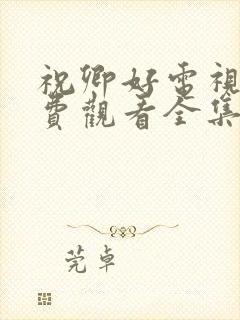 祝卿好電視
費觀看全集
莞卓